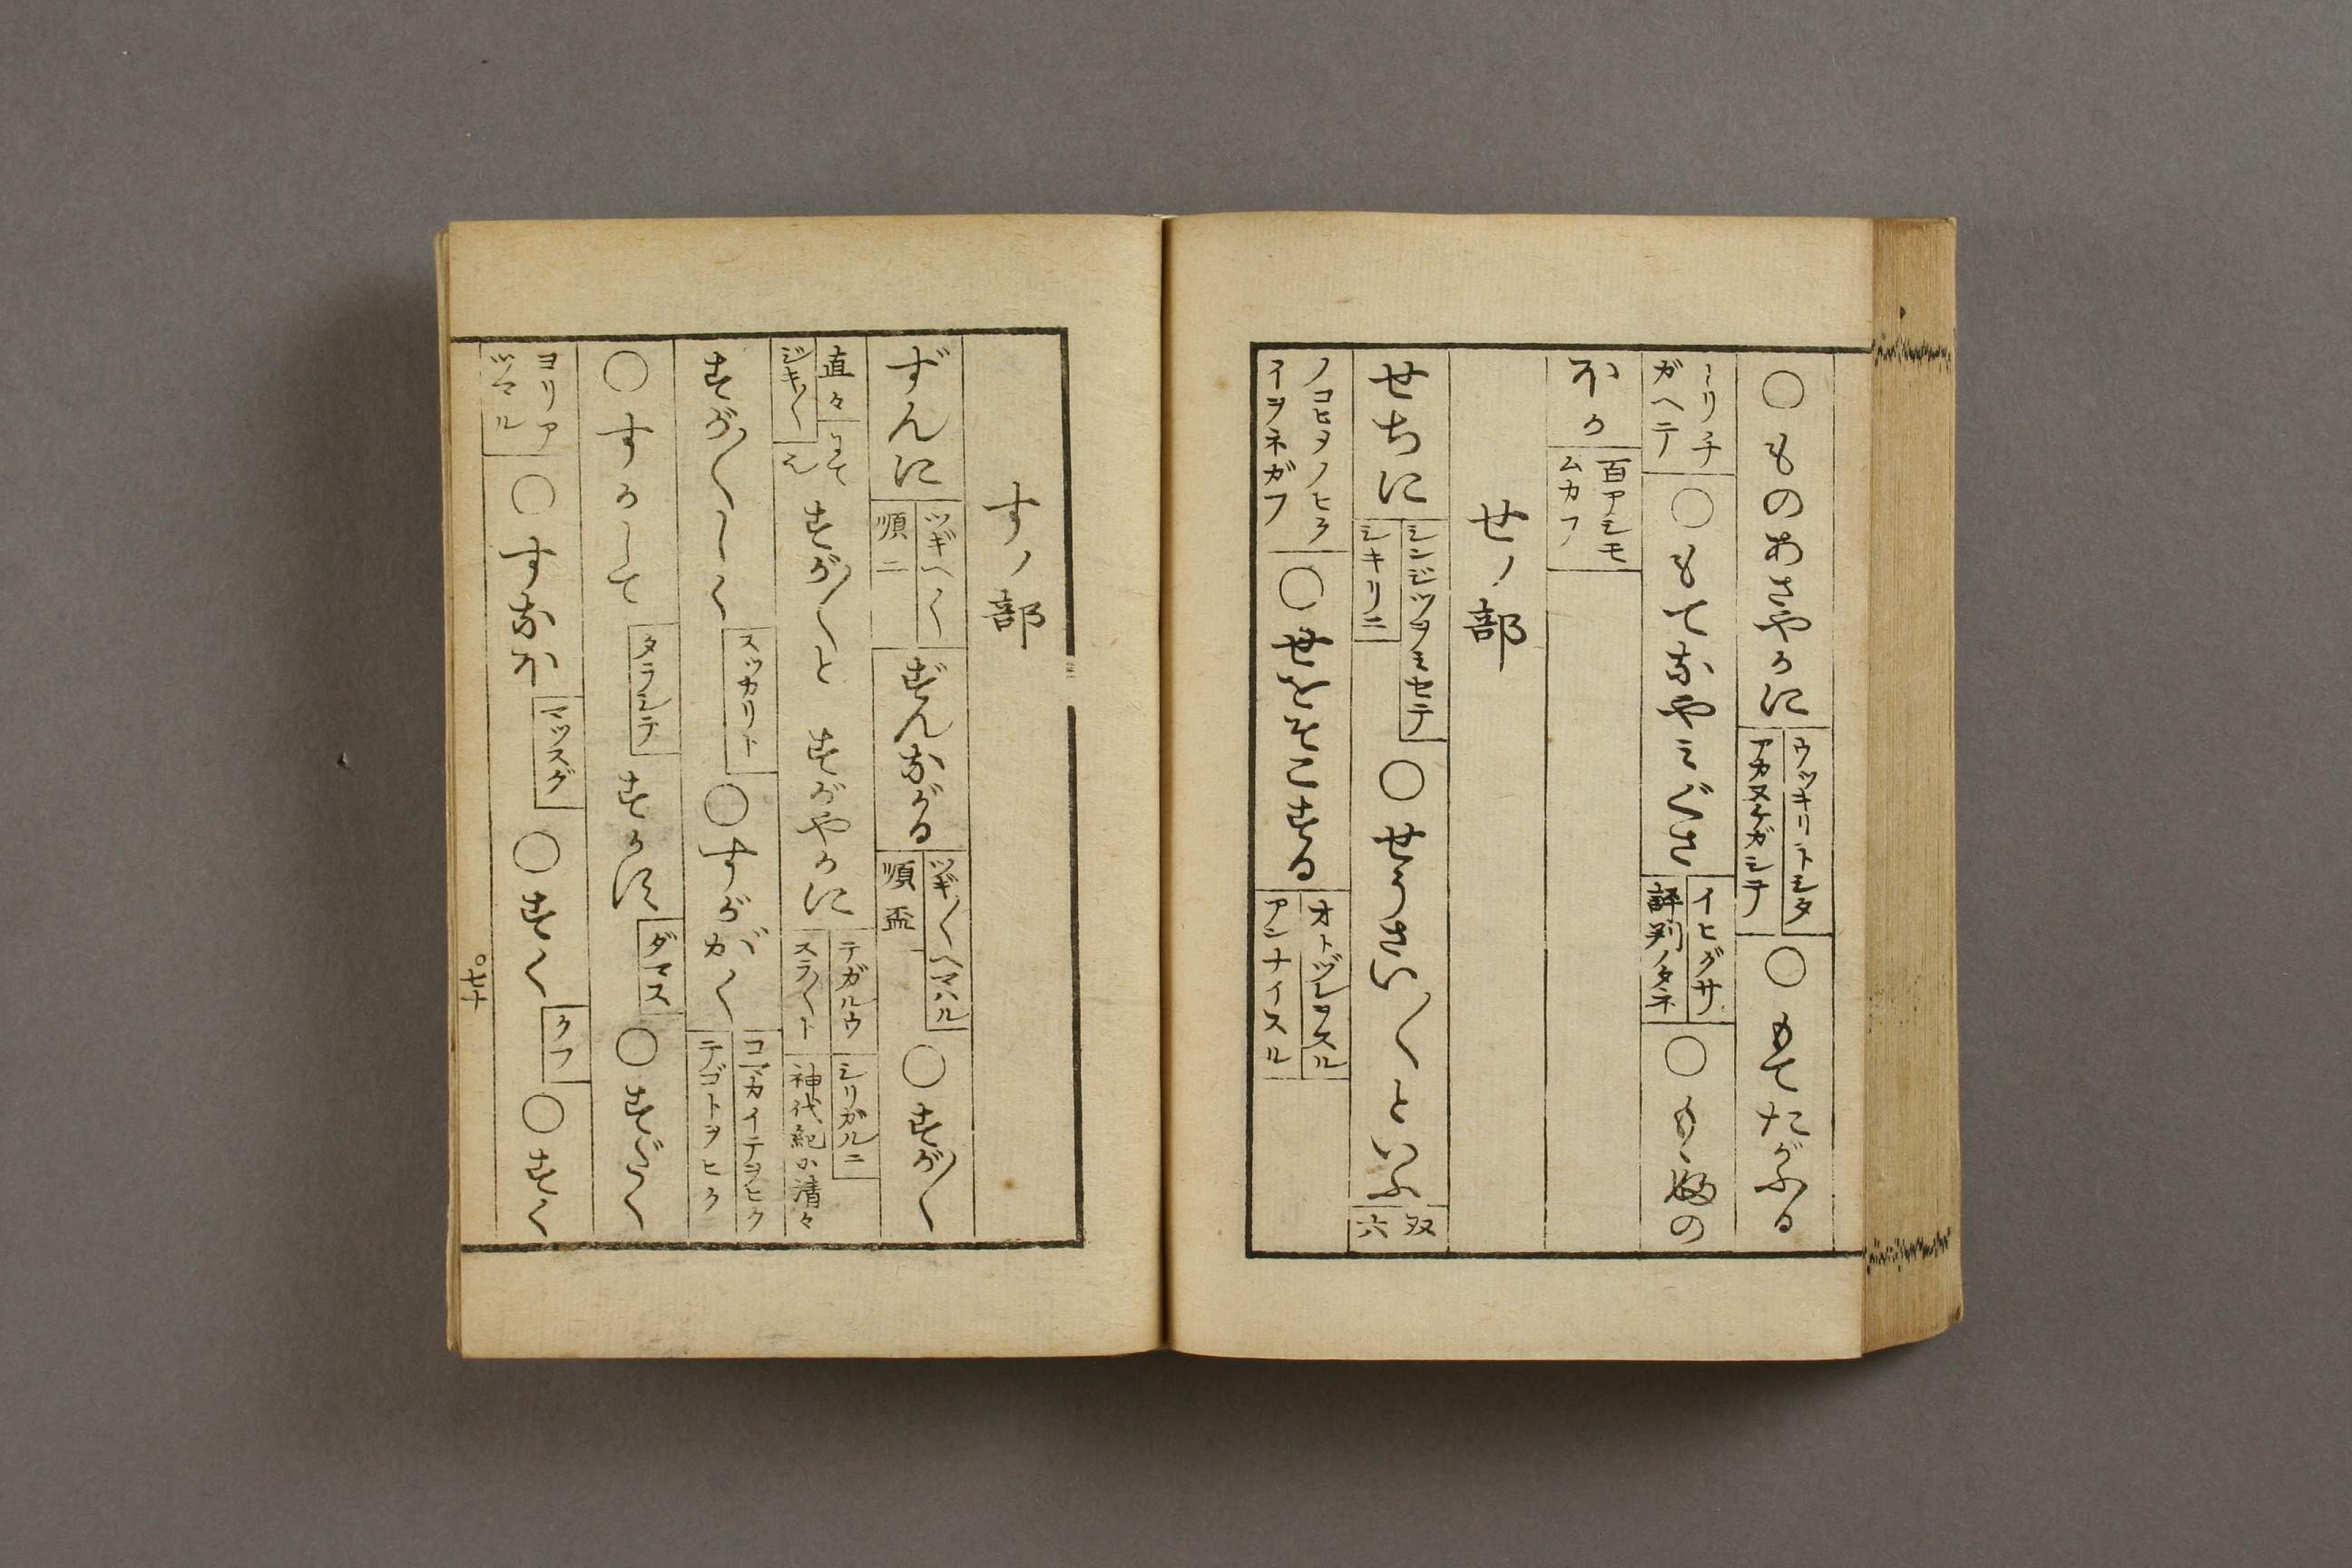 ○ものあさやかに ウッキリトシタ アカヌケガシテ ○もてたがふる
トリチガヘテ ○もてなやミぐさ イヒグサ 評判ノタネ ○もゝ夜の
ほか 百アシモムカフ
せノ部
せちに シンジツヲミセテ シキリニ ○せうさい〱といふ 双六
ノコヒタノヒクイヲネガフ ○せをそこする オトヅレヲスル アンナイスル
すノ部
ずんに ツギヘ〱 順ニ ずんながる ツギ〱ヘマハル 順盃 ○すが〱
直々 ジキ〱 すが〱と すがやかに テガルウ スラ〱ト シリガルニ 神代紀ニ清々
すが〱しく スッカリト ○すががく コマカイテヲヒク テゴトヲヒク
○すかして タラシテ すかす ダマス ○すごく
ヨリアツマル ○すなほ マッスグ ○すく クフ ○すく
○七十